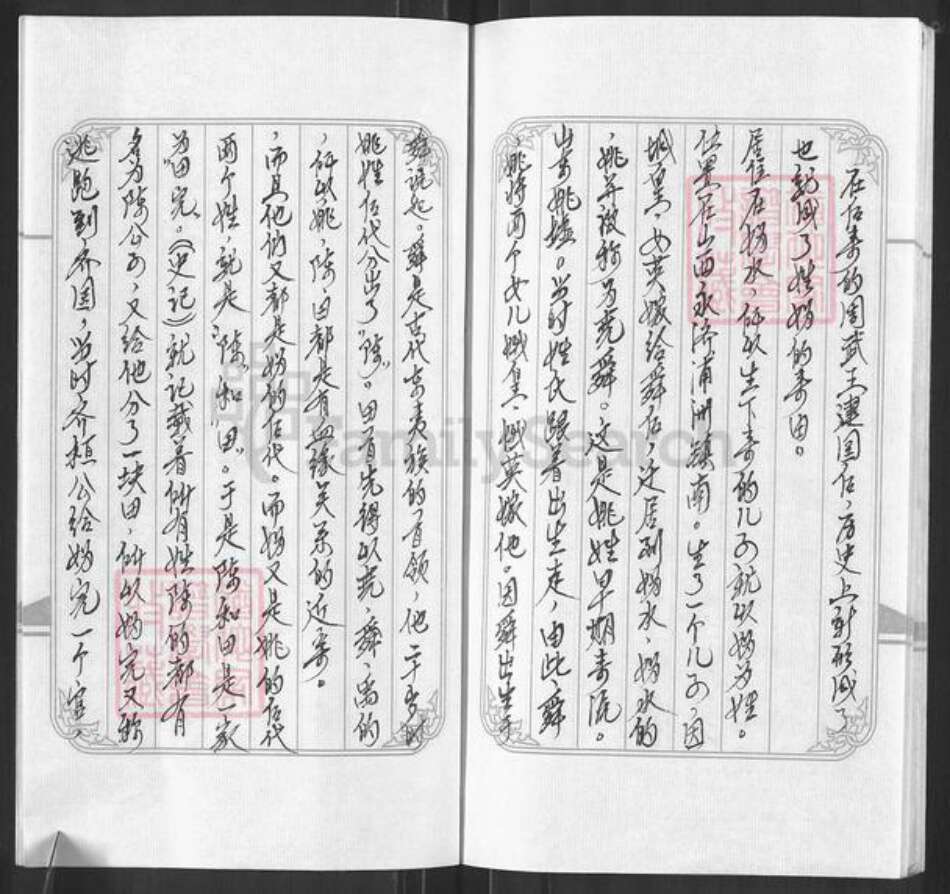 在后来的周武王建国后，历史上就形成了
也就成了姓妫的来由。
居住在妫水，所以生下来的儿子就以妫为姓。
位置在山西永济蒲洲镇南。生了一个儿子，因
娥皇、女英嫁给舜后，迁居到妫水，妫水的
，姚并被称为尧舜。这是姚姓早期来流。
出東姚墟。当时姓氏跟着出生走，由此舜
姚将两个女儿娥皇、娥英嫁他。因舜出生于
舜说起。舜是古代东夷族的首领，他二十多时
姚姓后代分出了“陈”。田首先得以尧，舜，禹的
，所以姚，陈，田都是有血缘关系的近亲。
，而且他们又都是妫的后代。而妫又是姚的后代
两个姓，就是“陈”和“田”。于是陈和田是一家
为田完。《史记》就记载着所有姓陈的都有
名为陈公子，又给他分了一块田，所以妫完又称
逃跑到齐国，当时齐桓公给妫完一个官，
FamilySearch